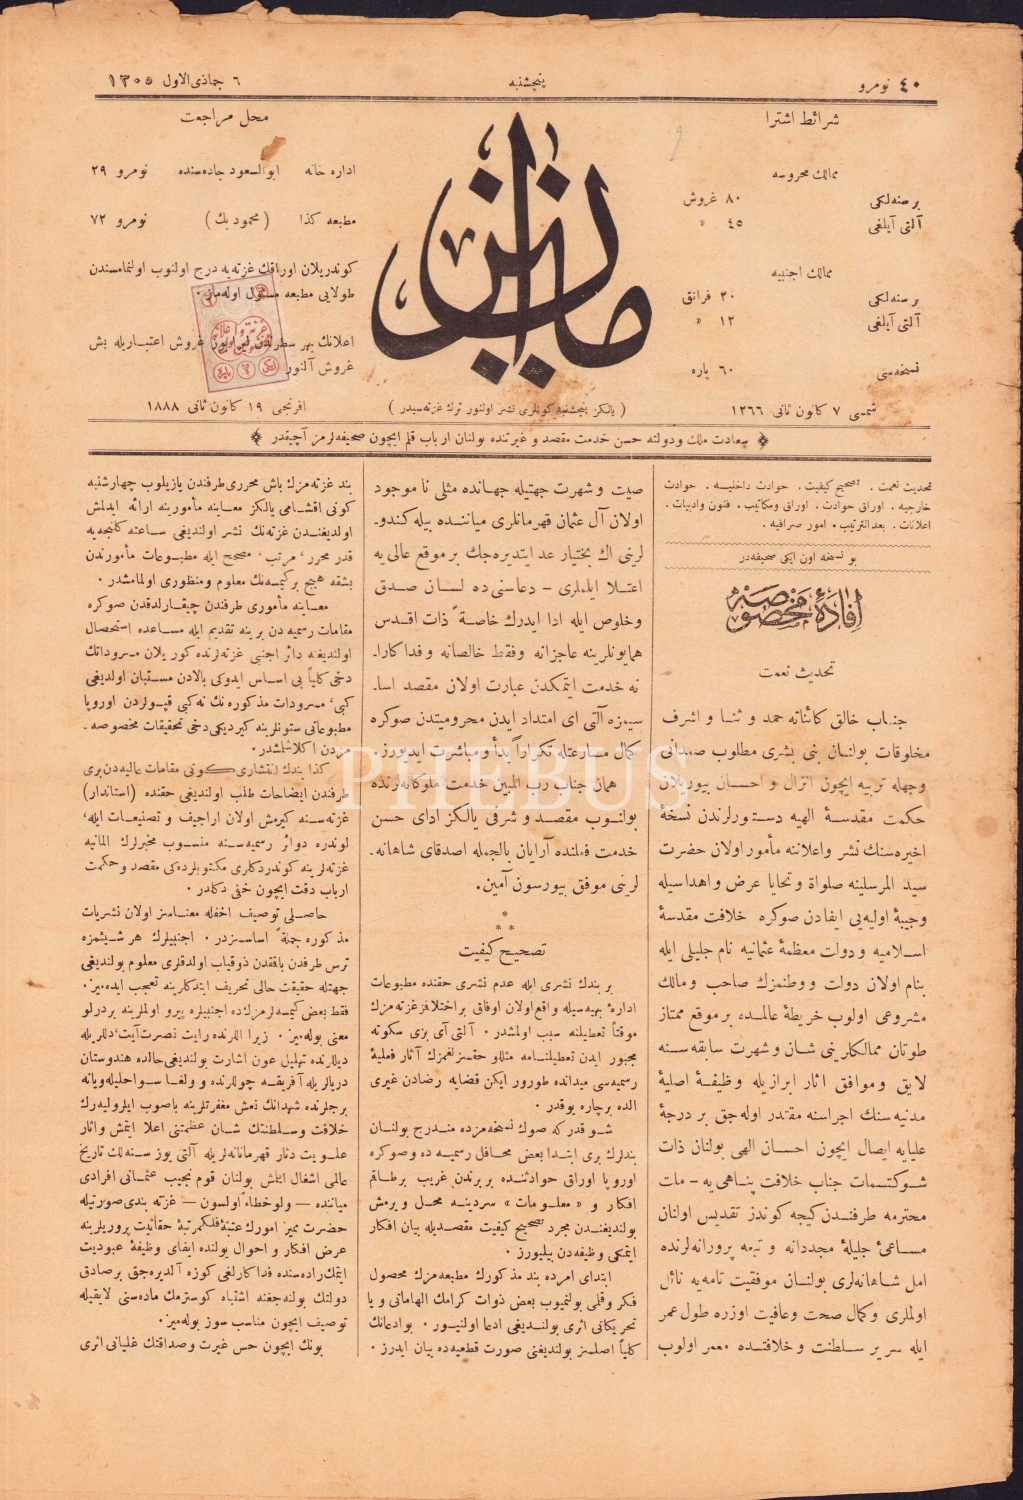 ٤٠ نومرو
پنچشنبه
٦ جماذی الاول ١٣٠٥
شرائط اشترا
ممالك محروسه
بر سنه لكی ٨٠ غروش
آلتی آیلغی ٤٥ »
ممالك اجنبیه
بر سنه لكی ٣٠ فرانق
آلتی آیلغی ١٢ »
نسخه سی ٦٠ پاره
شمسی ٧ كانون ثانی ١٢٦٦
( یالكز پنچشنبه كونلری نشر اولنور ترك غزته سیدر )
محل مراجعت
اداره خانه ابوالسعود جاده سنده نومرو ٢٩
مطبعه كذا ( محمود بك ) نومرو ٧٢
كوندریلان اوراقك غزته یه درج اولنوب اولنمامسندن
طولایی مطبعه مسئول اوله ماز ٠
اعلانك بهر سطرندن غروش اعتباریله بش
غروش آلنور
افرنجی ١٩ كانون ثانی ١٨٨٨
سعادت ملك ودولته حسن خدمت مقصد و غیرتنده بولنان ارباب قلم ایچون صحیفه لرمز آچیقدر
تحدیث نعمت ٠ تصحیح كیفیت ٠ حوادث داخلیه ٠ حوادث
خارجیه ٠ اوراق حوادث ٠ اوراق ومكاتیب ٠ فنون وادبیات ٠
اعلانات ٠ بعد الترتیب ٠ امور صرافیه ٠
بو نسخه اون ایكی صحیفه در
افادهٔ مخصوصه
تحدیث نعمت
جناب خالق كائناته حمد و ثنا و اشرف
مخلوقات بولنان بنی بشری مطلوب صمدانی
وجهله تربیه ایچون انزال و احسان بیوریلان
حكمت مقدسهٔ الهیه دستورلرندن نسخهٔ
اخیره سنك نشر واعلاننه مأمور اولان حضرت
سید المرسلینه صلواة وتحایا عرض واهداسیله
وجیبهٔ اولیه یی ایفادن صوكره خلافت مقدسهٔ
اسلامیه و دولت معظمهٔ عثمانیه نام جلیلی ایله
بنام اولان دولت ووطنمزك صاحب ومالك
مشروعی اولوب خریطهٔ عالمده بر موقع ممتاز
طوتان ممالكلرینی شان وشهرت سابقه سنه
لایق وموافق اثار ابرازیله وظیفهٔ اصلیهٔ
مدنیه سنك اجراسنه مقتدر اوله جق بر درجهٔ
علیایه ایصال ایچون احسان الهی بولنان ذات
شوكتسمات جناب خلافت پناهی یه - مات
محترمه طرفندن كیجه كوندز تقدیس اولنان
مساعیٔ جلیلهٔ مجددانه و تبعه پرورانه لرنده
امل شاهانه لری بولنان موفقیت تامه یه نائل
اولملری وكمال صحت وعافیت اوزره طول عمر
ایله سریر سلطنت وخلافتده معمر اولوب
صیت وشهرت جهتیله جهانده مثلی نا موجود
اولان آل عثمان قهرمانلری میاننده بیله كندو-
لرینی اك بختیار عد ایتدیره جك بر موقع عالی یه
اعتلا ایلملری - دعاسنی ده لسان صدق
وخلوص ایله ادا ایدرك خاصةً ذات اقدس
همایونلرینه عاجزانه وفقط خالصانه وفداكارا-
نه خدمت ایتمكدن عبارت اولان مقصد اسا-
سیمزه آلتی ای امتداد ایدن محرومیتدن صوكره
كمال مسارعتله تكراراً بدأ ومباشرت ایدیورز ٠
همان جناب رب المبین خدمت ملوكانه لرنده
بولنوب مقصد و شرفی یالكز ادای حسن
خدمت فعلنده آرایان بالجمله اصدقای شاهانه-
لرینی موفق بیورسون آمین ٠
*
* *
تصحیح كیفیت
بر بندك نشری ایله عدم نشری حقنده مطبوعات
ادارهٔ بهیه سیله واقع اولان اوفاق بر اختلاف غزته مزك
موقتاً تعطیلنه سبب اولمشدر ٠ آلتی آی بزی سكوته
مجبور ایدن تعطیلنامه مثللو حقسزلغمزك آثار فعلیهٔ
رسمیه سی میدانده طورور ایكن قضایه رضادن غیری
الده برچاره یوقدر ٠
شو قدر كه صوك نسخه مزده مندرج بولنان
بندلرك بری ابتدا بعض محافل رسمیه ده وصوكره
اوروپا اوراق حوادثنده بربرندن غریب برطاقم
افكار و « معلومات » سردینه محل ویرمش
بولندیغندن مجرد تصحیح كیفیت مقصدیله بیان افكار
ایتمكی وظیفه دن بیلیورز ٠
ابتدای امرده بند مذكورك مطبعه مزك محصول
فكر وقلمی بولنمیوب بعض ذوات كرامك الهاماتی و یا
تحریكاتی اثری بولندیغی ادعا اولنیور ٠ بوادعانك
كلیاً اصلسز بولندیغنی صورت قطعیه ده بیان ایدرز ٠
بند غزته مزك باش محرری طرفندن یازیلوب چهارشنبه
كونی اقشامی یالكز معاینه مأمورینه ارائه ایدلمش
اولدیغندن غزته نك نشر اولندیغی ساعته كلنجه یه
قدر محرر ، مرتب ، مصحح ایله مطبوعات مأمورندن
بشقه هیچ بر كیمسه نك معلوم ومنظوری اولمامشدر ٠
معاینه مأموری طرفندن چیقارلدقدن صوكره
مقامات رسمیه دن برینه تقدیم ایله مساعده استحصال
اولندیغنه دائر اجنبی غزته لرنده كوریلان مسروداتك
دخی كلیاً بی اساس ایدوكی بالادن مستبان اولدیغی
كبی ، مسرودات مذكوره نك نه كبی قپولردن اوروپا
مطبوعاتی ستونلرینه كیردیكی دخی تحقیقات مخصوصه-
مزدن اكلاشلمشدر ٠
كذا بندك انتشاری كونی مقامات عالیه دن بری
طرفندن ایضاحات طلب اولندیغی حقنده (استاندار)
غزته سنه كیرمش اولان اراجیف و تصنیعات ایله ،
لوندره دوائر رسمیه سنه منسوب مخبرلرك المانیه
غزته لرینه كوندردكلری مكتوبلرده كی مقصد وحكمت
ارباب دقت ایچون خفی دكلدر ٠
حاصلی توصیف اخفله معناسز اولان نشریات
مذكوره جملةً اساسسزدر ٠ اجنبیلرك هر شیئمزه
ترس طرفدن باققدن ذوقیاب اولدقلری معلوم بولندیغی
جهتله حقیقت حالی تحریف ایتدكلرینه تعجب ایده میز ٠
فقط بعض كیمسه لرمزك ده اجنبیلره پیرو اولملرینه بردرلو
معنی بوله میز ٠ زیرا اللرنده رایت نصرت آیت ، دللریله
دیللرنده تهلیل عون اشارت بولندیغی حالده هندوستان
دریالریله آفریقه چوللرنده و ولغا سواحلیله ویانه
برجلرنده شهدانك نعش مغفرتلرینه باصوب ایلرولیه رك
خلافت وسلطنتك شان عظمتنی اعلا ایتمش واثار
علویت دثار قهرمانانه لریله آلتی یوز سنه لك تاریخ
عالمی اشغال ایتمش بولنان قوم نجیب عثمانی افرادی
میاننده — ولو خطاءً اولسون — غزته بندی صورتیله
عرض افكار و احوال یولنده ایفای وظیفهٔ عبودیت
ایتمك راده سنده فداكارلغی كوزه آلدیره جق بر صادق
دولتك بوله جغنه اشتباه كوسترمك ماده سنی لایقیله
توصیف ایچون مناسب سوز بوله میز ٠
بونك ایچون حس غیرت وصداقتك غلیانی اثری
PHEBUS